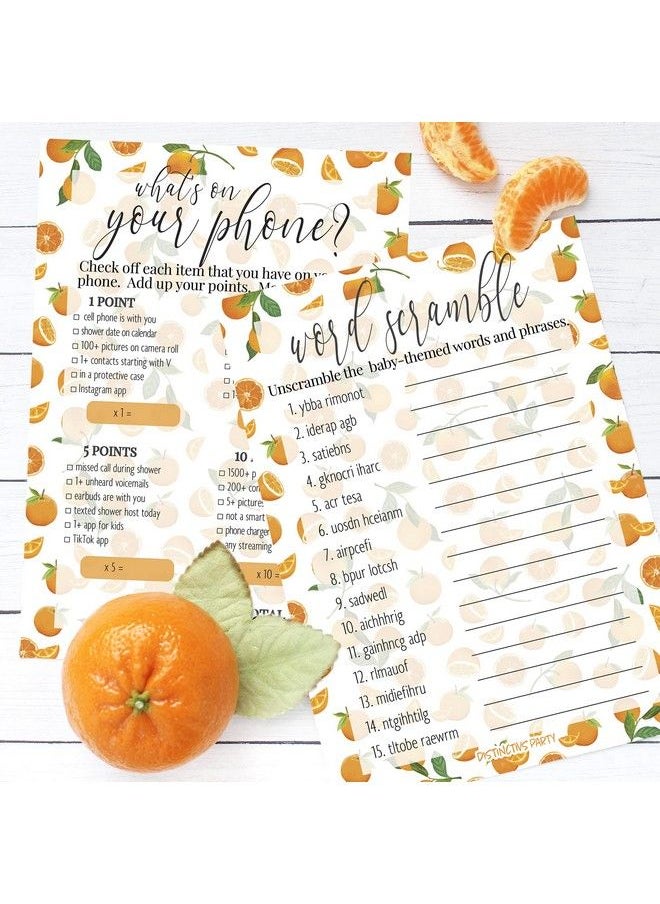 what's on
your phone?
Check off each item that you have on
phone. Add up your points.
1 POINT
cell phone is with you
shower date on calendar
100+ pictures on camera roll
1+ contacts starting with V
in a protective case
Instagram app
x 1 =
5 POINTS
missed call during shower
1+ unheard voicemails
earbuds are with you
texted shower host today
1+ app for kids
TikTok app
x 5 =
10
1500+ p
200+ con
5+ picture
not a smart
phone charger
any streaming
x 10 =
word scramble
Unscramble the baby-themed words and phrases.
1. ybba rimonot
2. iderap agb
3. satiebns
4. gknocri iharc
5. acr tesa
6. uosdn hceianm
7. airpcefi
8. bpur lotcsh
9. sadwedl
10. aichhhrig
11. gainhncg adp
12. rlmauof
13. midiefihru
14. ntgihhtilg
15. tltobe raewrm
DISTINCTIVS PARTY